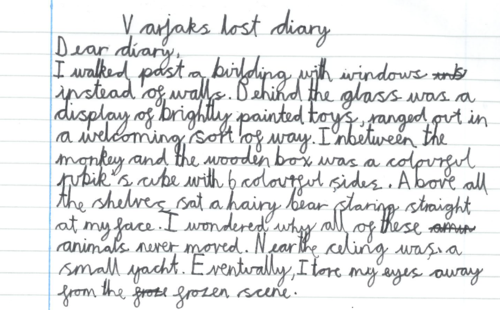 Varjaks lost diary
Dear diary,
I walked past a building with windows
instead of walls. Behind the glass was a
display of brightly painted toys, ranged out in
a welcoming sort of way. Inbetween the
monkey and the wooden box was a colourful
rubik's cube with 6 colourful sides. Above all
the shelves, sat a hairy bear staring straight
at my face. I wondered why all of these
animals never moved. Near the celing was a
small yacht. Eventually, I tore my eyes away
from the froze frozen scene.